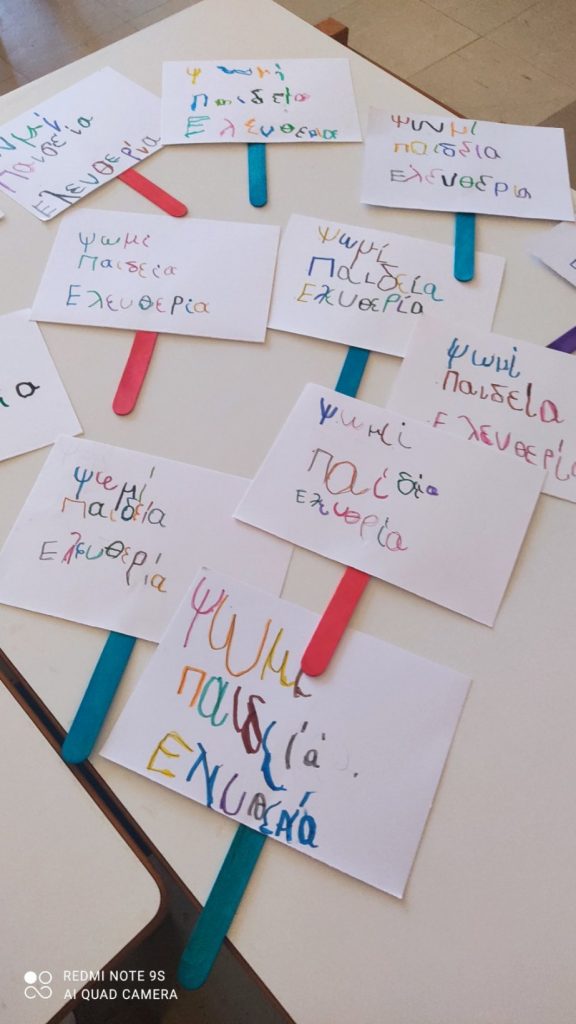 ωμί
Παιδεία
Ελευθερία
Ψωμί
Παιδεία
Ελευθερία
Ψωμί
παιδεια
Ελευθερία
ψωμί
Παιδεία
Ελευθερία
Ψωμί
Παιδεία
Ελευθερία
Ψωμί
Παιδεία
Ελευθερία
Ψωμί
Παίδεία
Ψωμί
Παιδεία
Ελευθερία
Ψωμι
παιδεία .
REDMI NOTE 9S
AI QUAD CAMERA